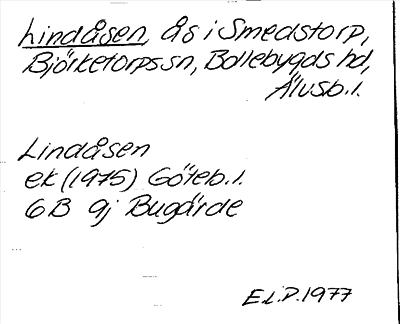 Lindåsen, ås i Smedstorp,
Björketorps sn, Bollebygds hd,
Älvsb. l.
Lindåsen
ek (1975) Göteb. l.
6B 9j Bugärde
E.L.P. 1977